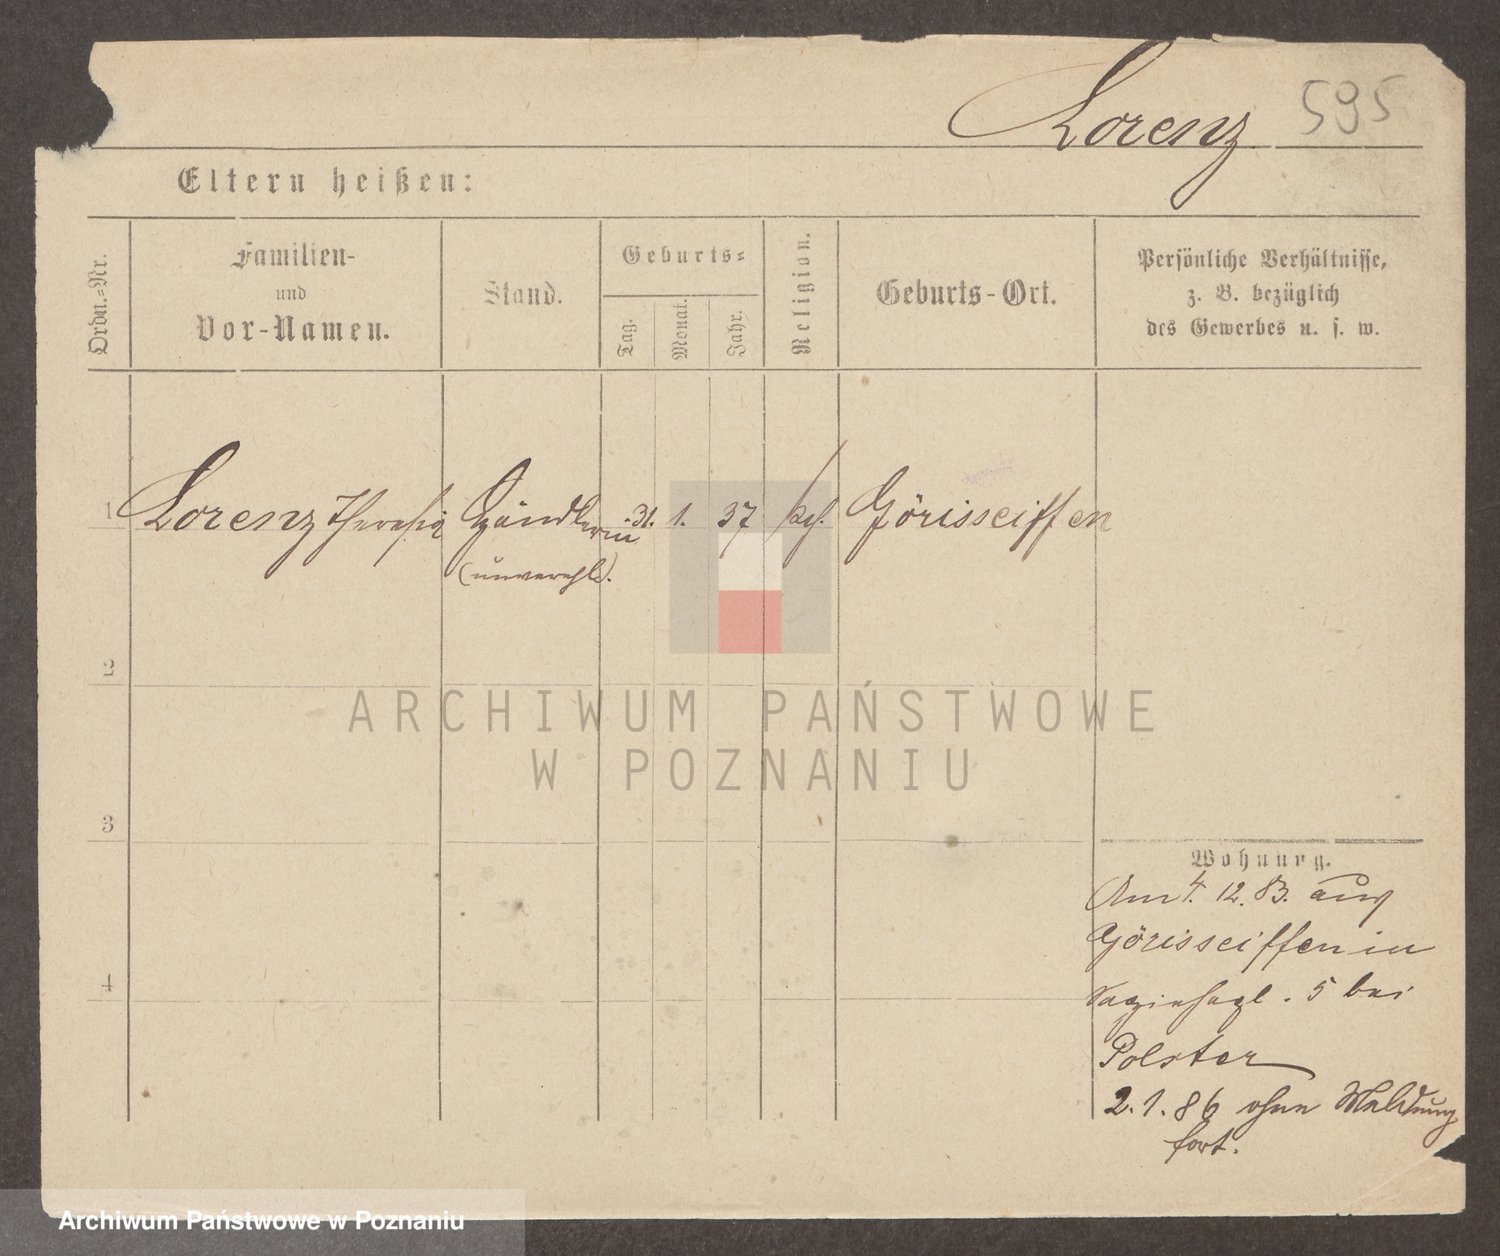 Lorenz 595
Eltern heißen:
Ordn.=Nr.
Familien-
und
Vor-Namen.
Stand.
Geburts=
Tag.
Monat.
Jahr.
Religion.
Geburts-Ort.
Persönliche Verhältnisse,
z. B. bezüglich
des Gewerbes u. s. w.
1 Lorenz Theresia Händlerin 31. 1. 37 Görisseiffen
(unverehl.)
2
3
4
ARCHIWUM PAŃSTWOWE
W POZNANIU
Wohnung.
Am 4. 12. 83. aus
Görisseiffen in
5 bei
Polster
2. 1. 86 ohne Meldung
fort.
Archiwum Państwowe w Poznaniu